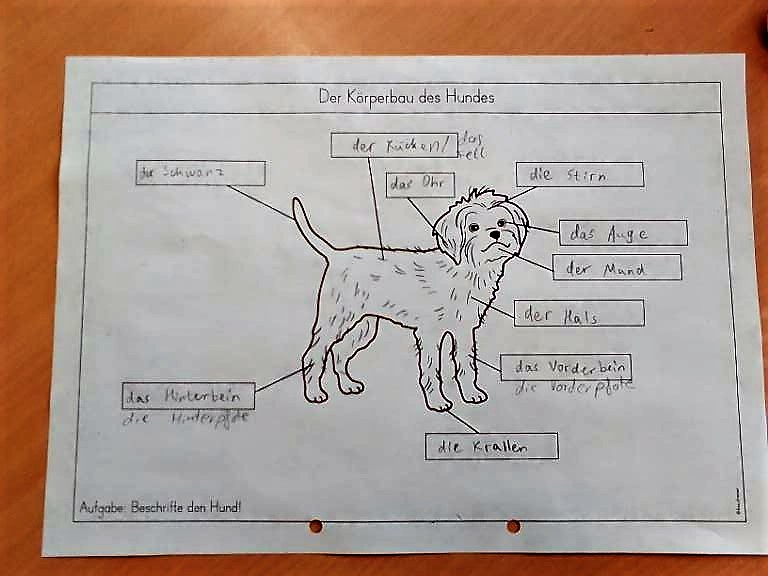 Der Körperbau des Hundes
der Rücken/ das
Fell
der Schwanz
das Ohr
die Stirn
das Auge
der Mund
der Hals
das Vorderbein
die Vorderpfote
das Hinterbein
die Hinterpfote
die Krallen
Aufgabe: Beschrifte den Hund!